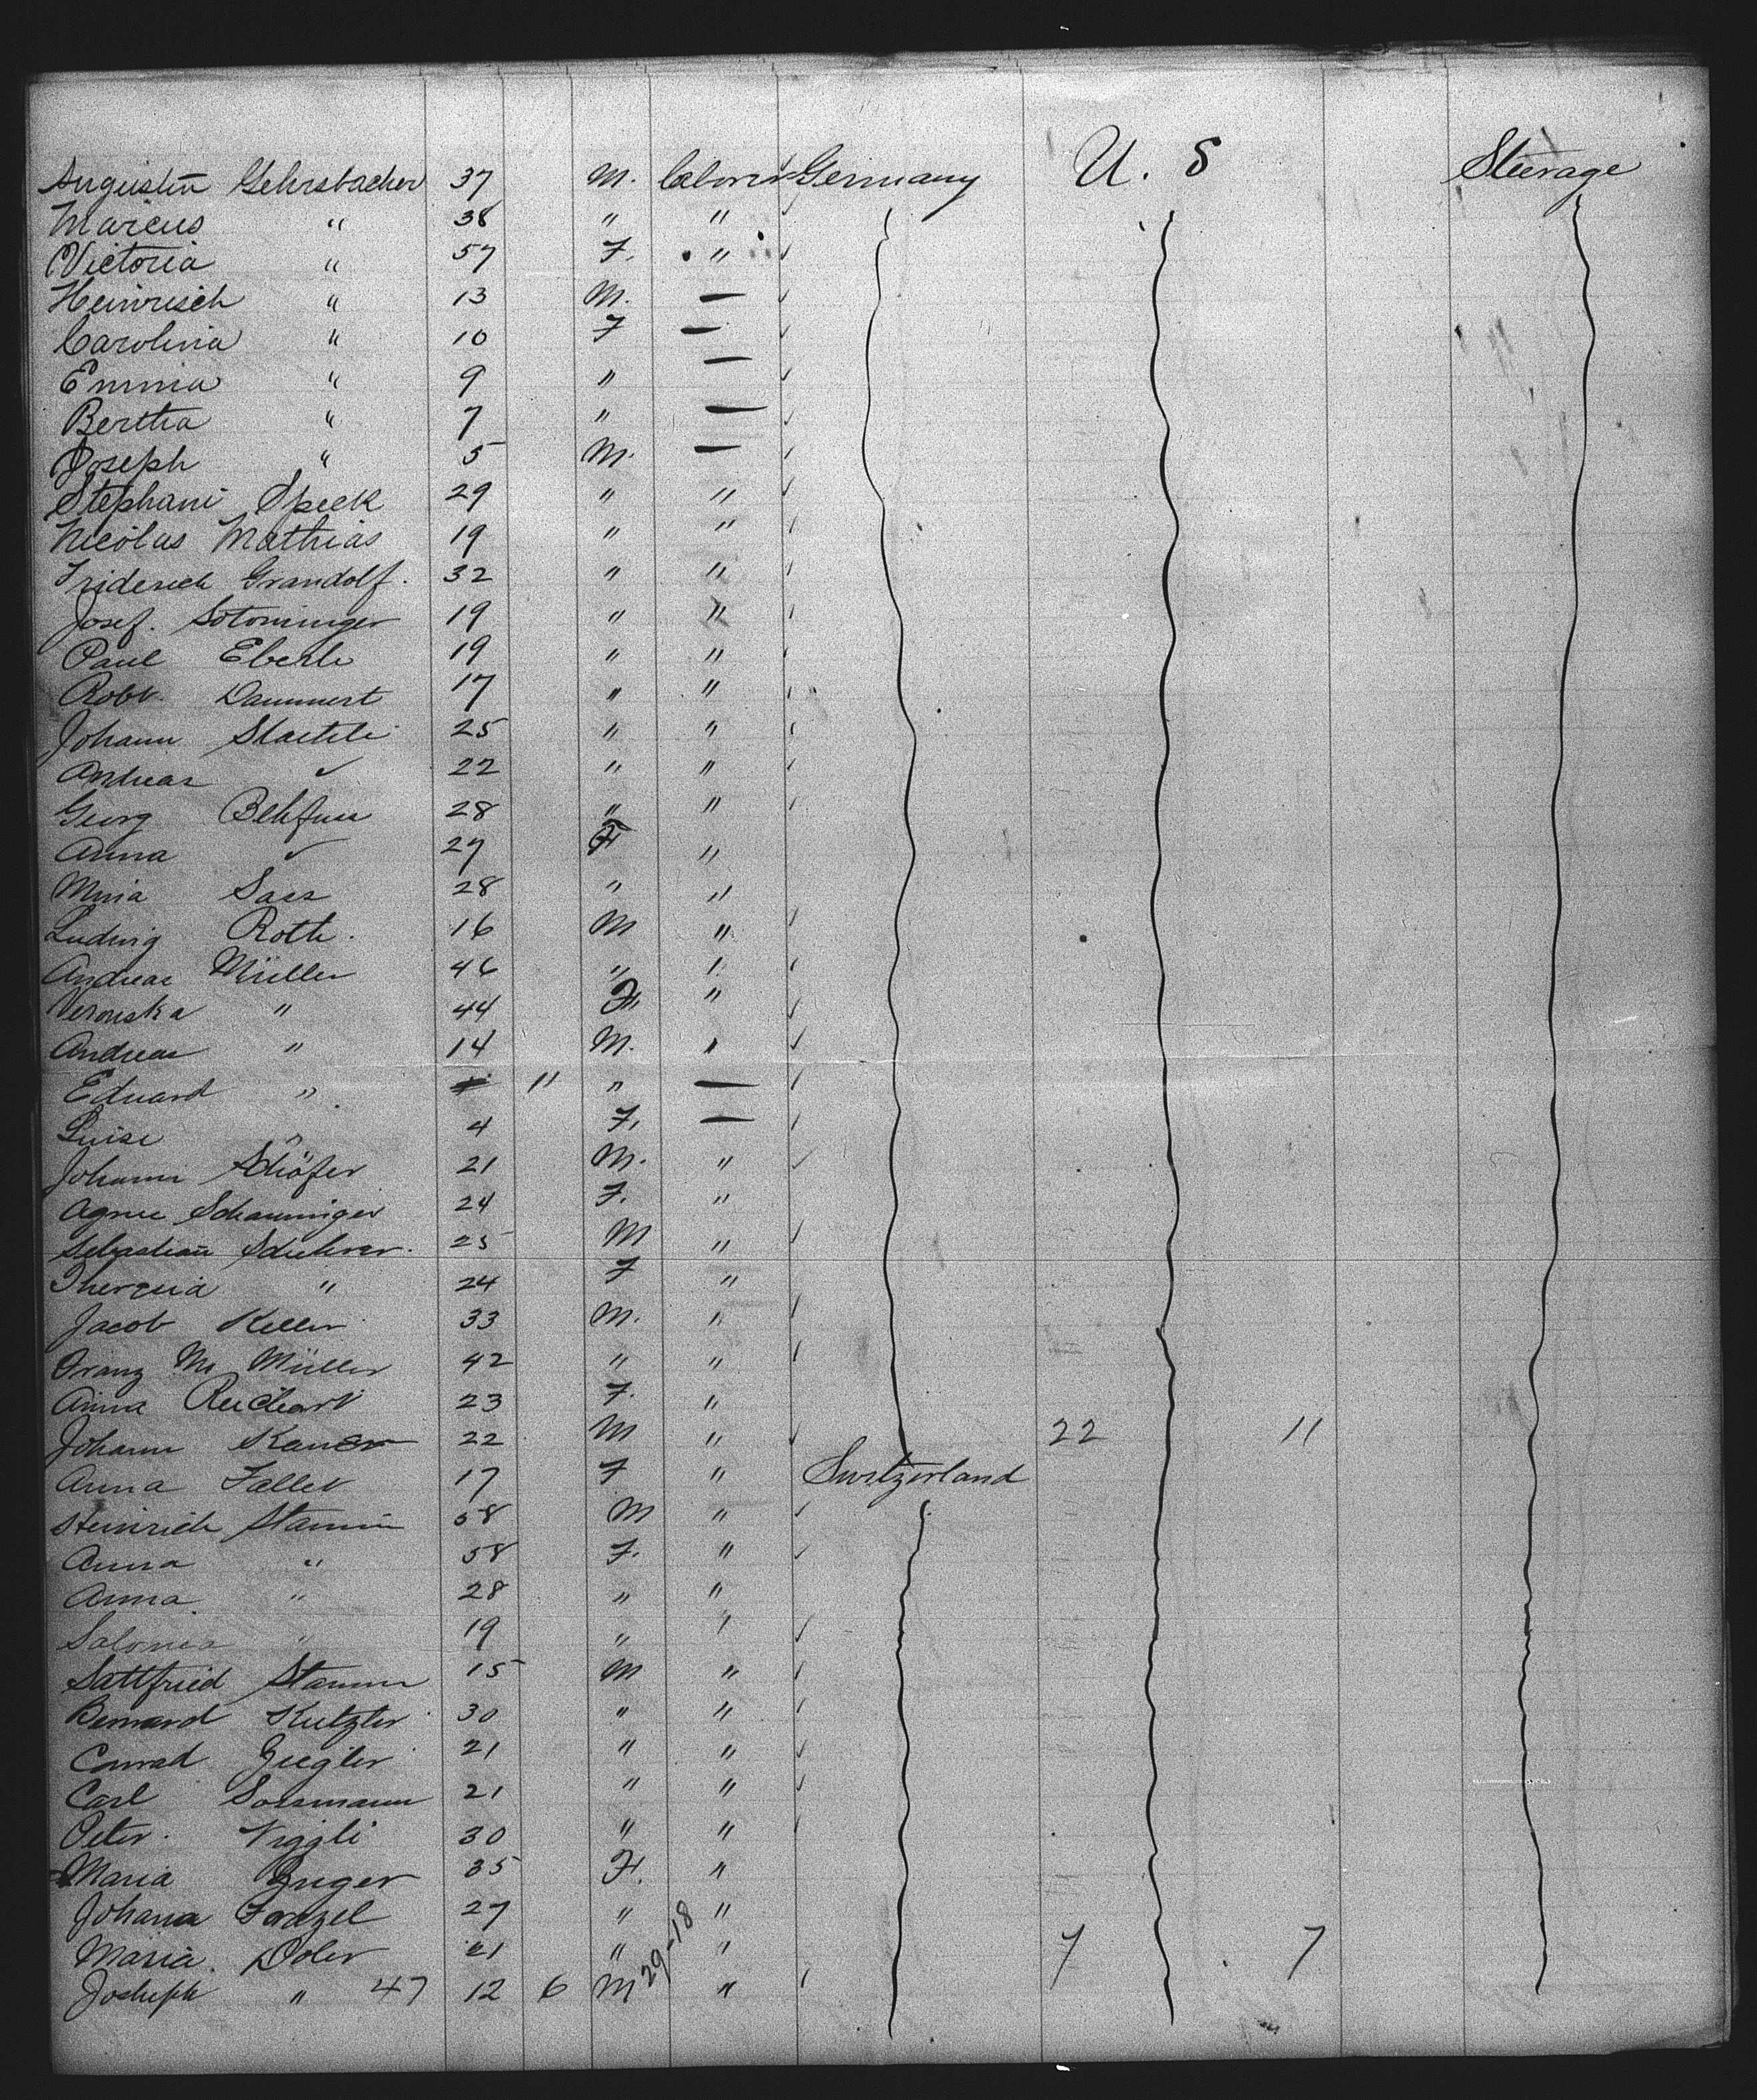 Augustin Gehrsbacher 37 M. Laborer Germany U. S Steerage
Marcus " 38 " "
Victoria " 57 F. "
Heinrisch " 13 M. —
Carolina " 10 F —
Emma " 9 " —
Bertha " 7 " —
Joseph " 5 M. —
Stephani Speek 29 " "
Nicolas Mathias 19 " "
Friderich Grandolf. 32 " "
Josef. 19 " "
Paul Eberle 19 " "
Robt. Dammert 17 " "
Johann 25 " "
Andreas ✓ 22 " "
Georg Behfuss 28 " "
Anna ✓ 27 F "
Maria Sass 28 " "
Ludwig Roth. 16 M "
Andreas Müller 46 " "
Veronika " 44 F "
Andreas " 14 M. "
Eduard " 11 " —
Luise " 4 F. —
Johann Schäfer 21 M. "
Agnes Schauninger 24 F. "
Sebastian 25 M "
Theresia " 24 F "
Jacob Keller 33 M. "
Franz M. Müller 42 " "
Anna Reichart 23 F. "
Johann 22 M " 22 11
Anna Fallet 17 F " Switzerland
Heinrich Stamm 58 M "
Anna " 58 F. "
Anna " 28 " "
Salomea " 19 " "
Gottfried Stamm 15 M "
Bernard Kutzler 30 " "
Conrad Ziegler 21 " "
Carl Sossmann 21 " "
Peter. Niggli 30 " "
Maria Zuger 35 F. "
Johana Franzel 27 " "
Maria. Doler 21 " " 7 7
Josheph " 47 12 6 M 29-18 "